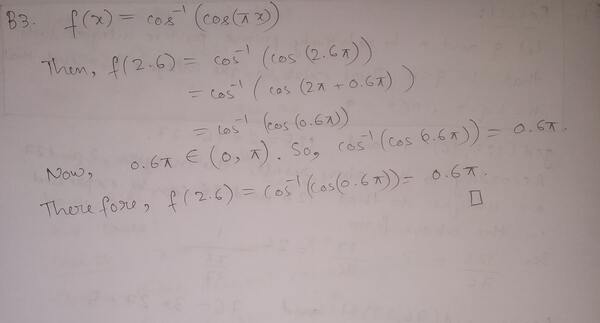 B3. f(x) = cos⁻¹(cos(πx))
Then, f(2.6) = cos⁻¹(cos(2.6π))
= cos⁻¹(cos(2π + 0.6π))
= cos⁻¹(cos(0.6π))
Now, 0.6π ∈ (0, π). So, cos⁻¹(cos(0.6π)) = 0.6π.
Therefore, f(2.6) = cos⁻¹(cos(0.6π)) = 0.6π.
□